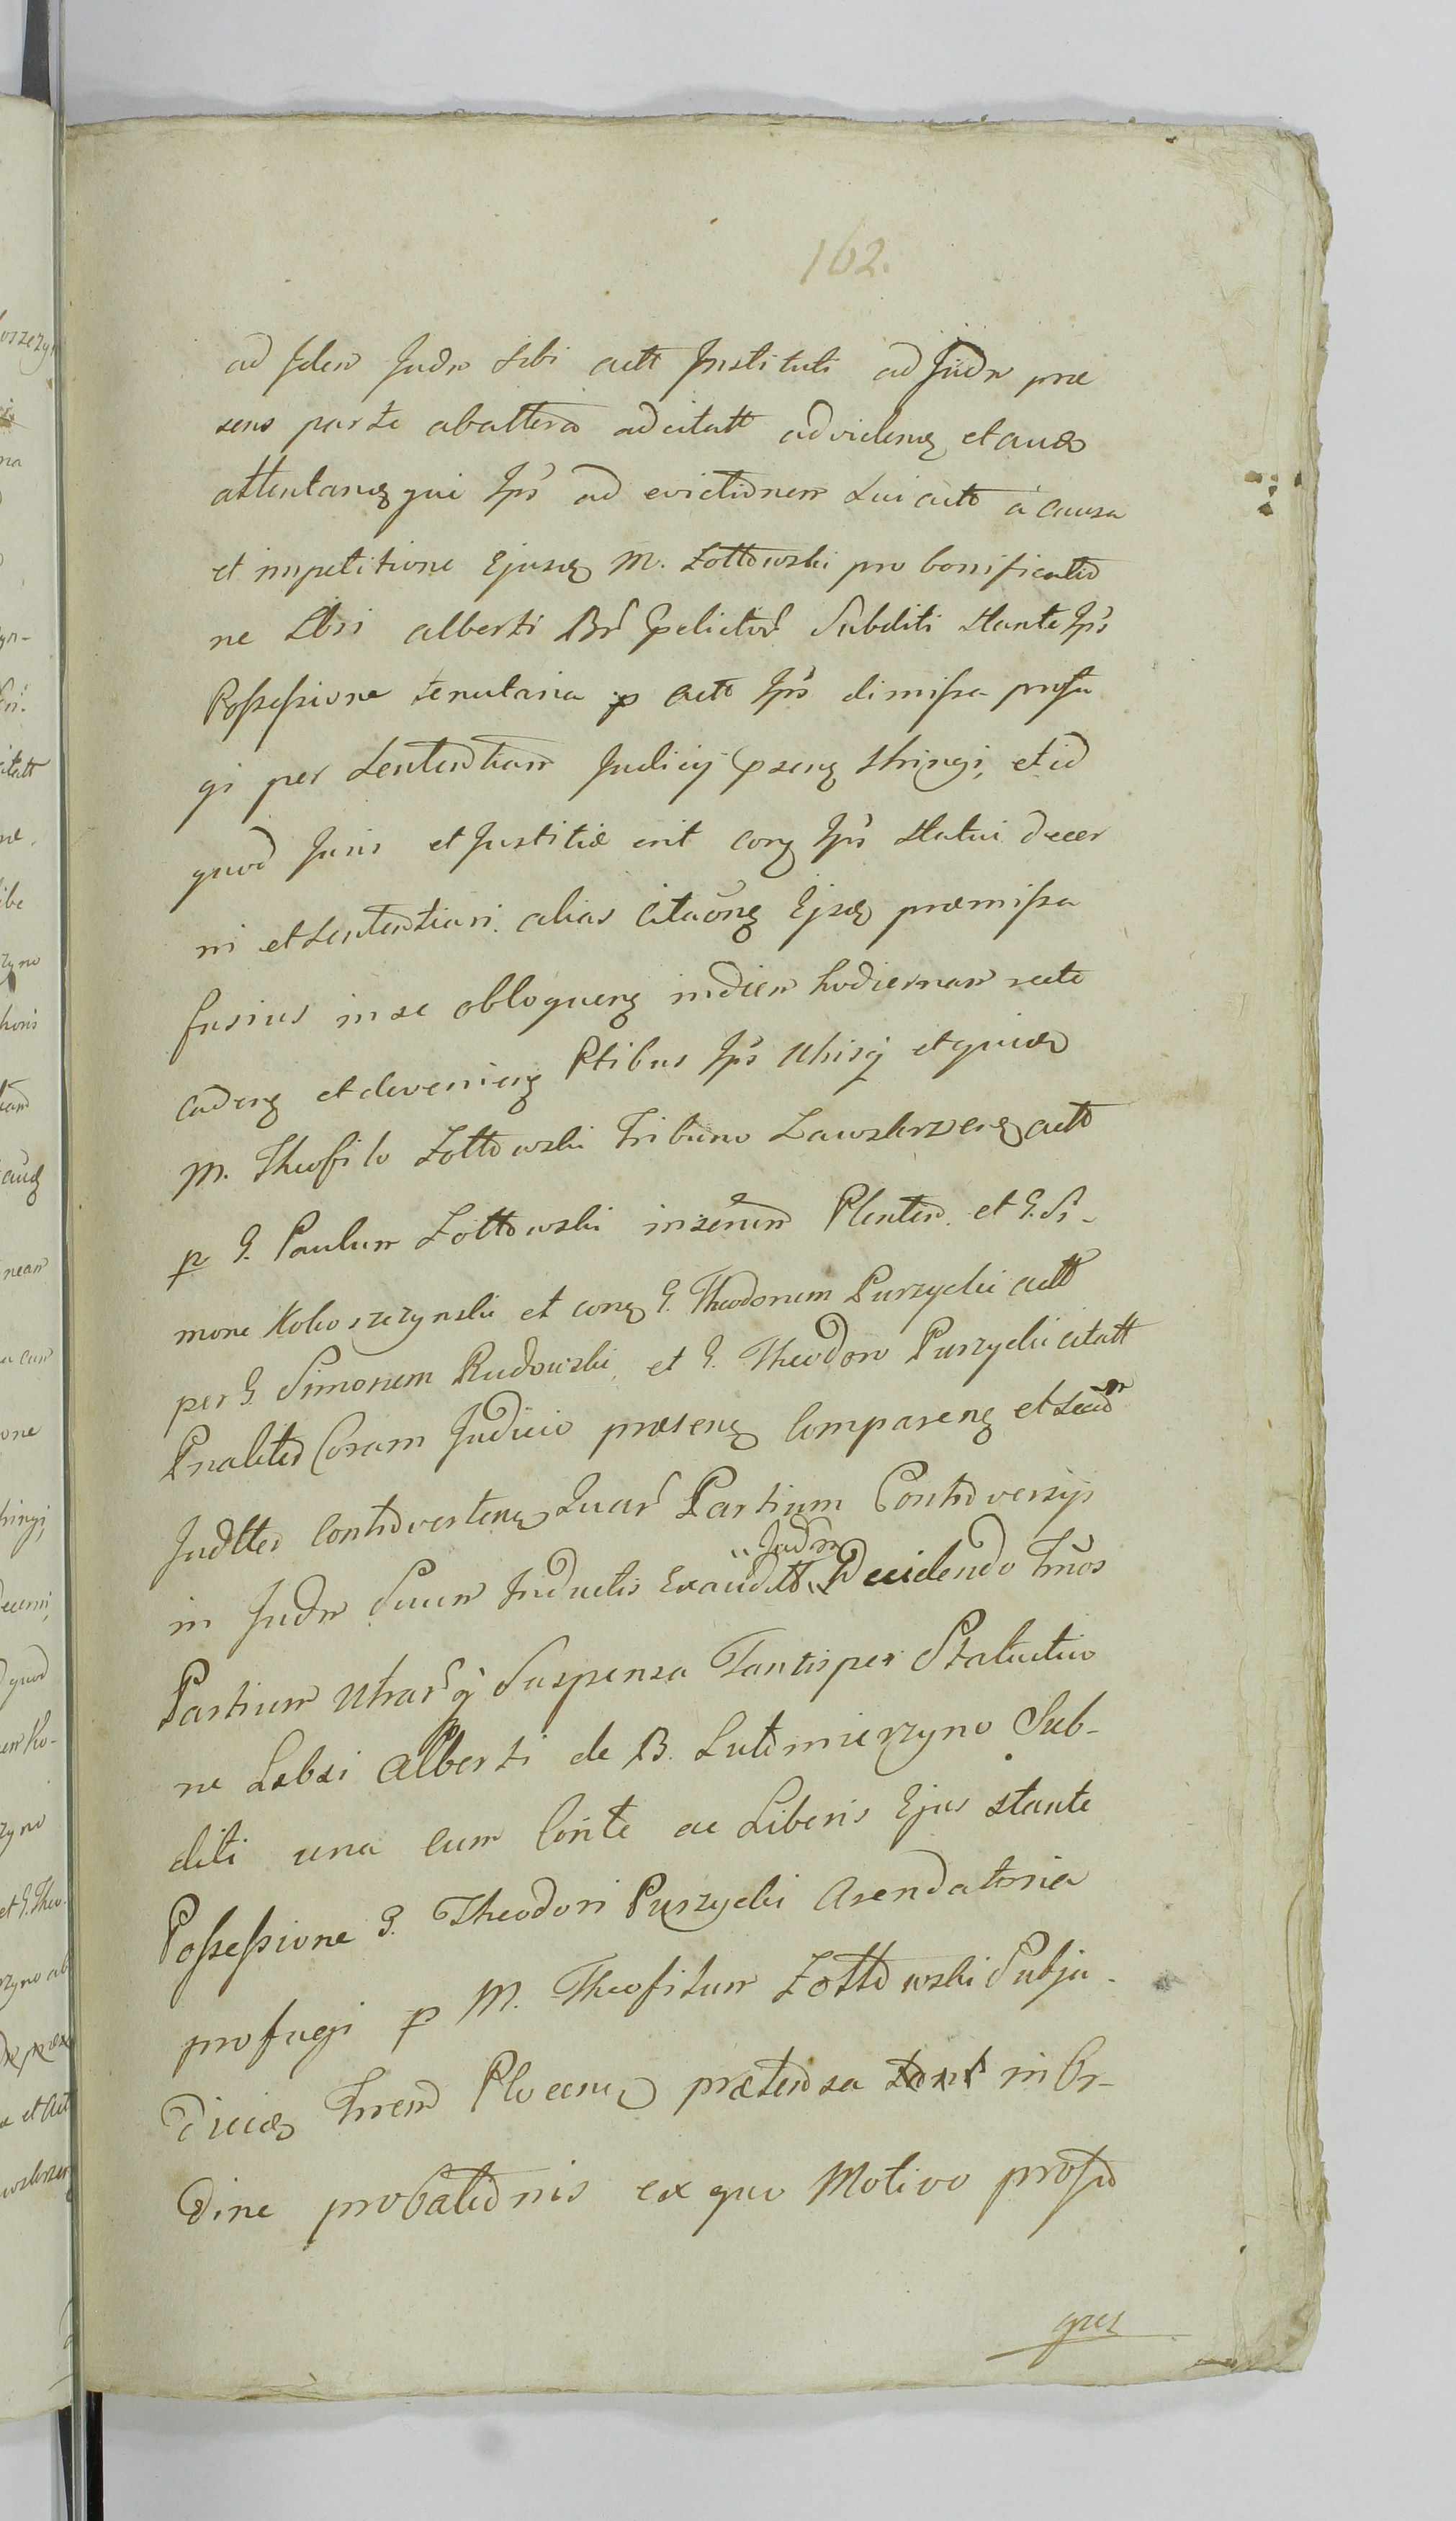 162.
ad Idem Judm sibi actt Instituti ad Judm præ
sens parte ab altera adcitatt ad videnq et aud
attentanq qui Ips ad evictionem sui actt à causa
et impetitione Ejusq M. Zołtowski pro bonificatio
ne Lbsi alberti Br Pdictor Subditi stante Ips
Possessione tenutaria p actt Ips dimissa profu
gi per Sententiam Judicij Psenq stringi, et id
quod Juris et Justitiæ erit conq Ips statui decer
ni et Sententiari. alias Citaõnq Ejsq præmissa
fusius in se obloquenq in diem hodiernam recte
cadenq et devenienq Ptibus Ips Utrisq et quid
M. Theofilo Zołtowski Tribuno Zawskrzenq actt
p G. Paulum Zołtowski in Termino Plenten. et G. Si-
mone Kokoszczynski et conq G. Theodorum Purzycki actt
per G. Simonem Rudowski, et G. Theodoro Purzycki citatt
Pnaliter Coram Judicio præsenq Comparenq et secum
Judlter Controvertenq Quar Partium Controversijs
in Judm Suum Inductis Exauditt Judm Decidendo Tmos
Partium Utrarq Suspensa Tantisper Statutio
ne Labsi Alberti de B. Lutomierzyno Sub-
diti una cum Conte ac Liberis Ejus stante
Possessione G. Theodori Purzycki Arendatoria
profugi p M. Theofilum Zołtowski Subju-
dicq Trrem Plocenq prætensa in Or-
dine probationis ex quo Motivo profu